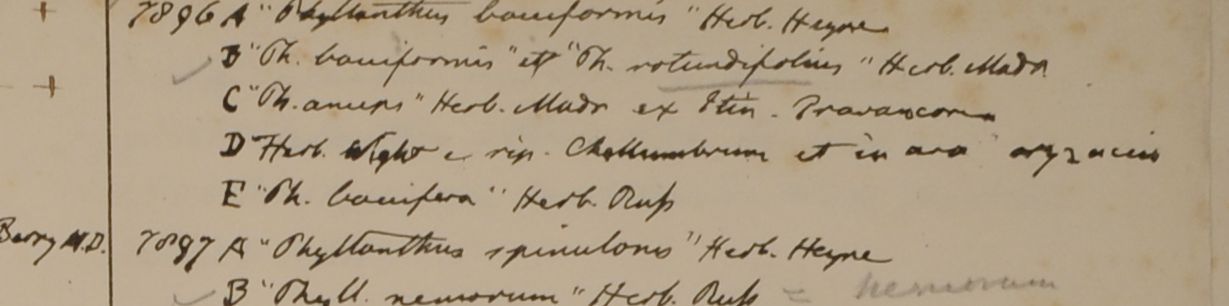 7896 A "Phyllanthus bacciformis" Herb. Heyne
B "Ph. bacciformis" et "Ph. rotundifolius" Herb. Madr
C "Ph. anceps" Herb. Madr ex Itin. Travancorea
D Herb. Wight e rip. et in
E "Ph. baccifera" Herb. Russ
Berry M.D. 7897 A "Phyllanthus spinulosus" Herb. Heyne
B "Phyll. nemorum" Herb. Russ = nemorum